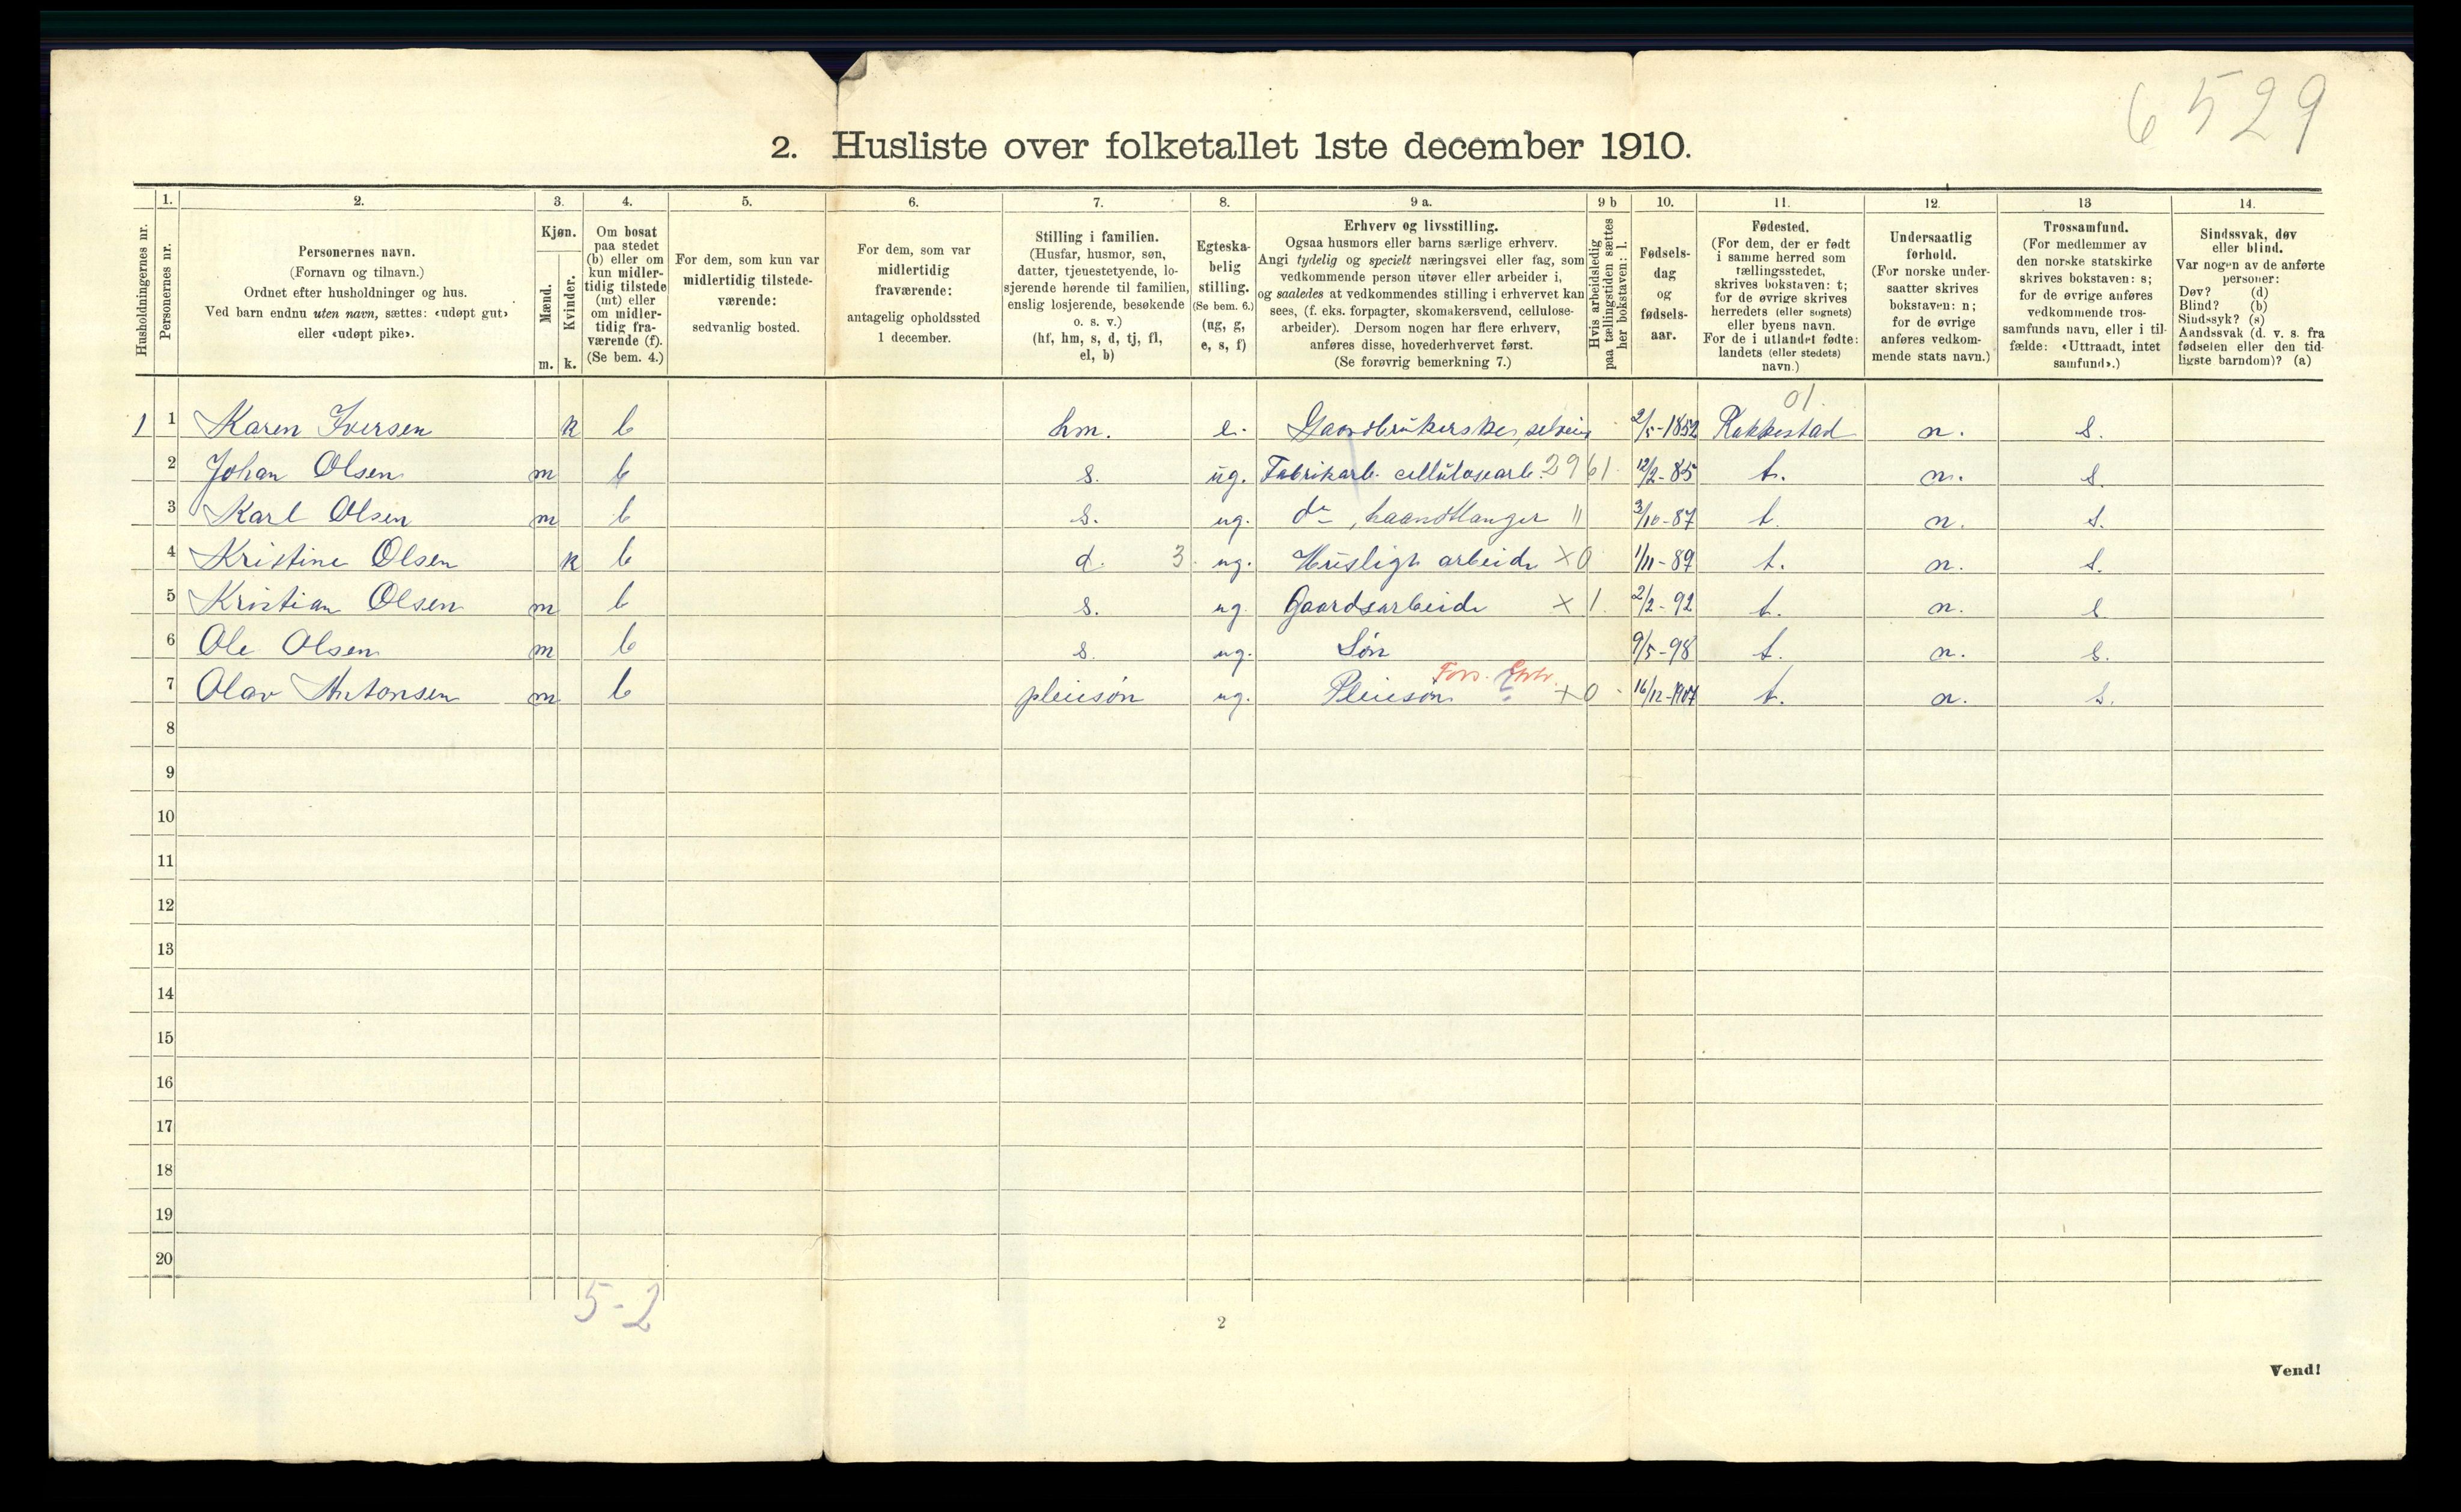 6529
2. Husliste over folketallet 1ste december 1910.
Husholdningernes nr.
1. Personernes nr.
2. Personernes navn.
(Fornavn og tilnavn.)
Ordnet efter husholdninger og hus.
Ved barn endnu uten navn, sættes: «udøpt gut»
eller «udøpt pike».
3. Kjøn.
Mænd. m.
Kvinder. k.
4. Om bosat
paa stedet
(b) eller om
kun midler-
tidig tilstede
(mt) eller
om midler-
tidig fra-
værende (f).
(Se bem. 4.)
5. For dem, som kun var
midlertidig tilstede-
værende:
sedvanlig bosted.
6. For dem, som var
midlertidig
fraværende:
antagelig opholdssted
1 december.
7. Stilling i familien.
(Husfar, husmor, søn,
datter, tjenestetyende, lo-
sjerende hørende til familien,
enslig losjerende, besøkende
o. s. v.)
(hf, hm, s, d, tj, fl,
el, b)
8. Egteska-
belig
stilling.
(Se bem. 6.)
(ug, g,
e, s, f)
9 a. Erhverv og livsstilling.
Ogsaa husmors eller barns særlige erhverv.
Angi tydelig og specielt næringsvei eller fag, som
vedkommende person utøver eller arbeider i,
og saaledes at vedkommendes stilling i erhvervet kan
sees, (f. eks. forpagter, skomakersvend, cellulose-
arbeider). Dersom nogen har flere erhverv,
anføres disse, hovederhvervet først.
(Se forøvrig bemerkning 7.)
9 b Hvis arbeidsledig
paa tællingstiden sættes
her bokstaven: l.
10. Fødsels-
dag
og
fødsels-
aar.
11. Fødested.
(For dem, der er født
i samme herred som
tællingsstedet,
skrives bokstaven: t;
for de øvrige skrives
herredets (eller sognets)
eller byens navn.
For de i utlandet fødte:
landets (eller stedets)
navn.)
12. Undersaatlig
forhold.
(For norske under-
saatter skrives
bokstaven: n;
for de øvrige
anføres vedkom-
mende stats navn.)
13 Trossamfund.
(For medlemmer av
den norske statskirke
skrives bokstaven: s;
for de øvrige anføres
vedkommende tros-
samfunds navn, eller i til-
fælde: «Uttraadt, intet
samfund».)
14. Sindssvak, døv
eller blind.
Var nogen av de anførte
personer:
Døv? (d)
Blind? (b)
Sindssyk? (s)
Aandssvak (d. v. s. fra
fødselen eller den tid-
ligste barndom)? (a)
01.
1 1 Karen Iversen k b hm. e. Gaardbrukerske, selveier 2/5-1852 Rakkestad n. s.
2 Johan Olsen m b s. ug. Fabrikarb. cellulosearb. 2961 12/2-85 t. n. s.
3 Karl Olsen m b s. ug. do, haandlanger " 3/10-87 t. n. s.
4 Kristine Olsen k b d. 3 ug. Husligt arbeide x 0 1/11-89 t. n. s.
5 Kristian Olsen m b s. ug. Gaardsarbeide x 1. 2/2-92 t. n. s.
6 Ole Olsen m b s. ug. Søn 9/5-98 t. n. s.
Fors.
7 Olav Antonsen m b pleiesøn ug. Pleiesøn x 0 16/12-1907 t. n. s.
8
9
10
11
12
13
14
15
16
17
18
19
20
5-2
2
Vend!